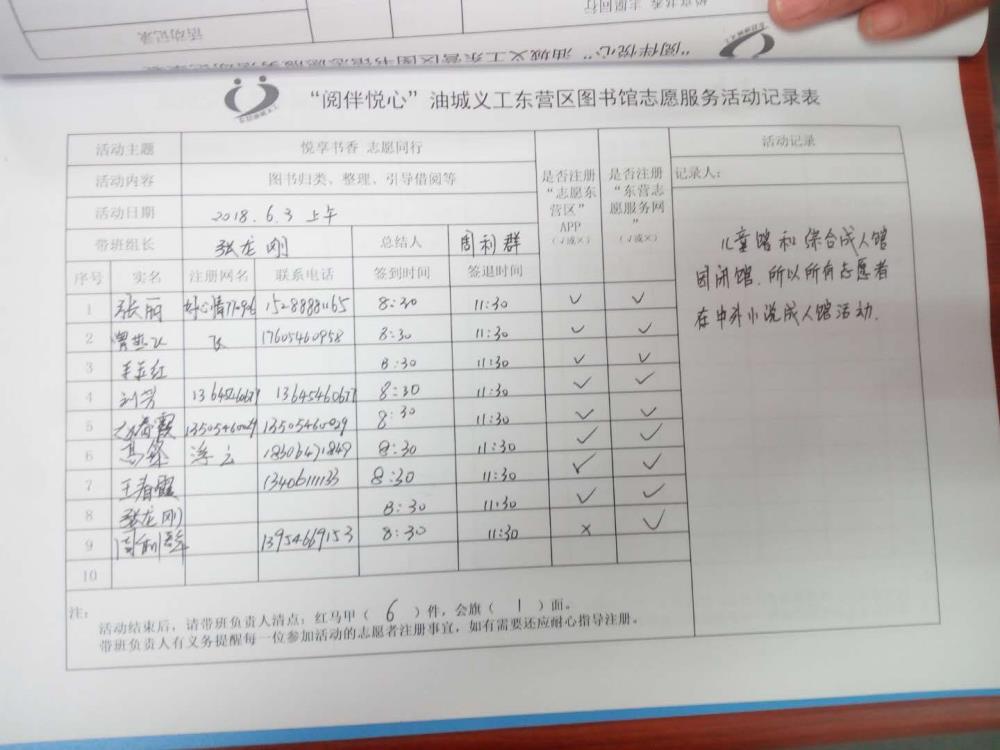 活动记录
"阅伴悦心"油城义工东营区图书馆志愿服务活动记录表
活动主题 悦享书香 志愿同行 是否注册"志愿东营区"APP(√或×) 是否注册"东营志愿服务网"(√或×) 活动记录
活动内容 图书归类、整理、引导借阅等 记录人：
活动日期 2018.6.3 上午
带班组长 张龙刚 总结人 周利群
序号 实名 注册网名 联系电话 签到时间 签退时间
1 张丽 15288881165 8:30 11:30 ✓ ✓
2 飞 17605460958 8:30 11:30 ✓ ✓
3 8:30 11:30 ✓ ✓
4 刘芳 13645460677 8:30 11:30 ✓ ✓
5 13505460029 13505460029 8:30 11:30 ✓ ✓
6 浮云 18306471849 8:30 11:30 ✓ ✓
7 王春霞 13406111133 8:30 11:30 ✓ ✓
8 张龙刚 8:30 11:30 ✓ ✓
9 周利群 13954669153 8:30 11:30 × ✓
10
儿童馆和综合成人馆
因闭馆.所以所有志愿者
在中外小说成人馆活动.
注：
活动结束后，请带班负责人清点：红马甲（ 6 ）件，会旗（ 1 ）面。
带班负责人有义务提醒每一位参加活动的志愿者注册事宜，如有需要还应耐心指导注册。